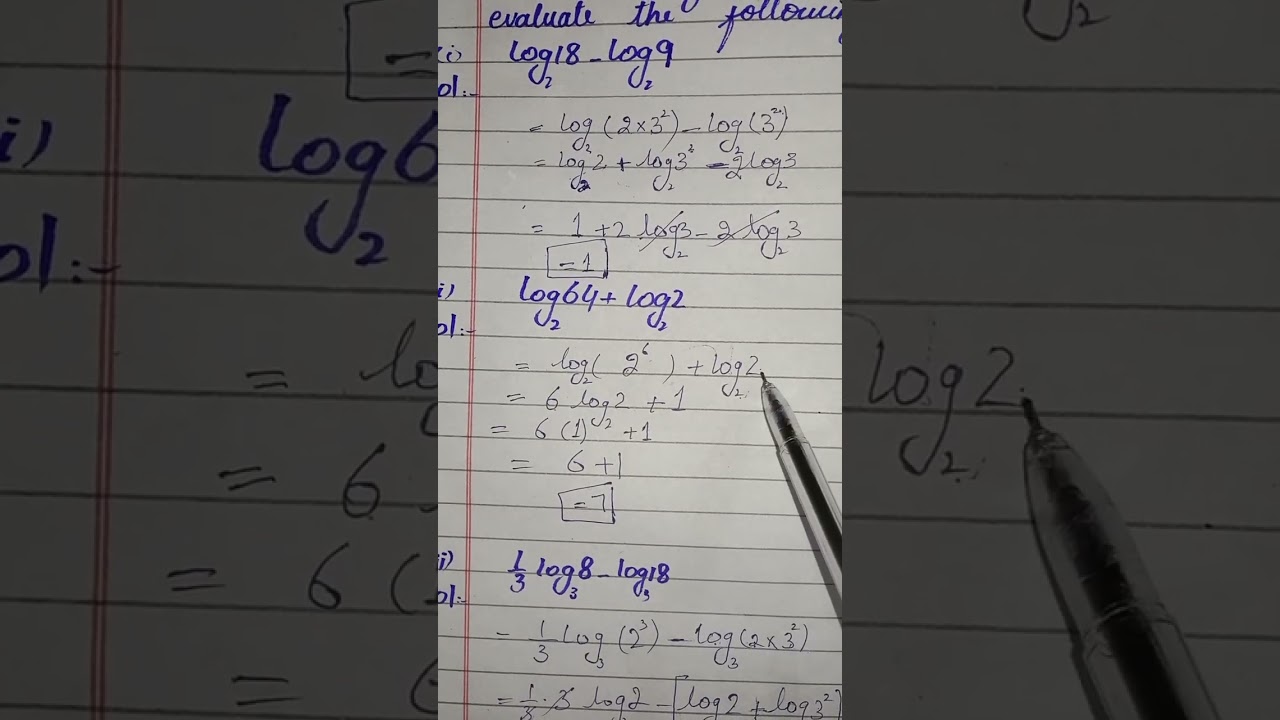 evaluate the following
(i) log₂18 - log₂9
ol:-
= log₂(2×3²) - log₂(3²)
= log₂2 + log₂3² - 2log₂3
= 1 + 2 log₂3 - 2 log₂3
= 1
i) log₂64 + log₂2
ol:-
= log₂( 2⁶ ) + log₂2
= 6 log₂2 + 1
= 6 (1) + 1
= 6 + 1
= 7
i) 1/3 log₃8 - log₃18
ol:-
- 1/3 log₃(2³) - log₃(2×3²)
= 1/3 · 3 log2 - [log2 + log3²]